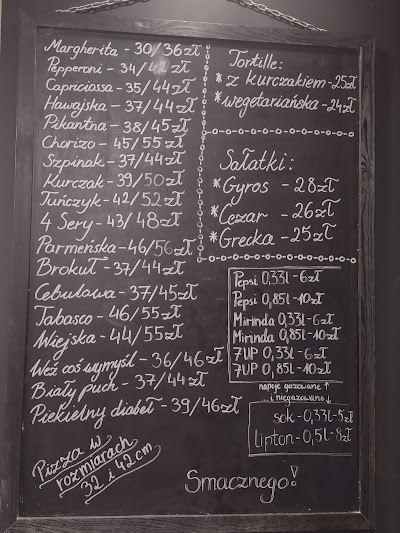 Margherita - 30/36zł
Pepperoni - 34/42 zł
Capriciossa - 35/44zł
Hawajska - 37/44zł
Pikantna - 38/45zł
Chorizo - 45/55zł
Szpinak - 37/44zł
Kurczak - 39/50zł
Tuńczyk - 42/52zł
4 Sery - 43/48zł
Parmeńska - 46/56zł
Brokuł - 37/44zł
Cebulowa - 37/45zł
Tabasco - 46/55zł
Wiejska - 44/55zł
Weź coś wymyśl - 36/46zł
Biały puch - 37/44zł
Piekielny diabeł - 39/46zł
Pizza w
rozmiarach
32 i 42cm
Tortille:
* z kurczakiem - 25zł
* wegetariańska - 24zł
Sałatki:
* Gyros - 28zł
* Cezar - 26zł
* Grecka - 25zł
Pepsi 0,33l - 6zł
Pepsi 0,85l - 10zł
Mirinda 0,33l - 6zł
Mirinda 0,85l - 10zł
7UP 0,33l - 6zł
7UP 0,85l - 10zł
napoje gazowane ↑
... i niegazowane ↓
sok - 0,33l - 5zł
lipton - 0,5l - 8zł
Smacznego!